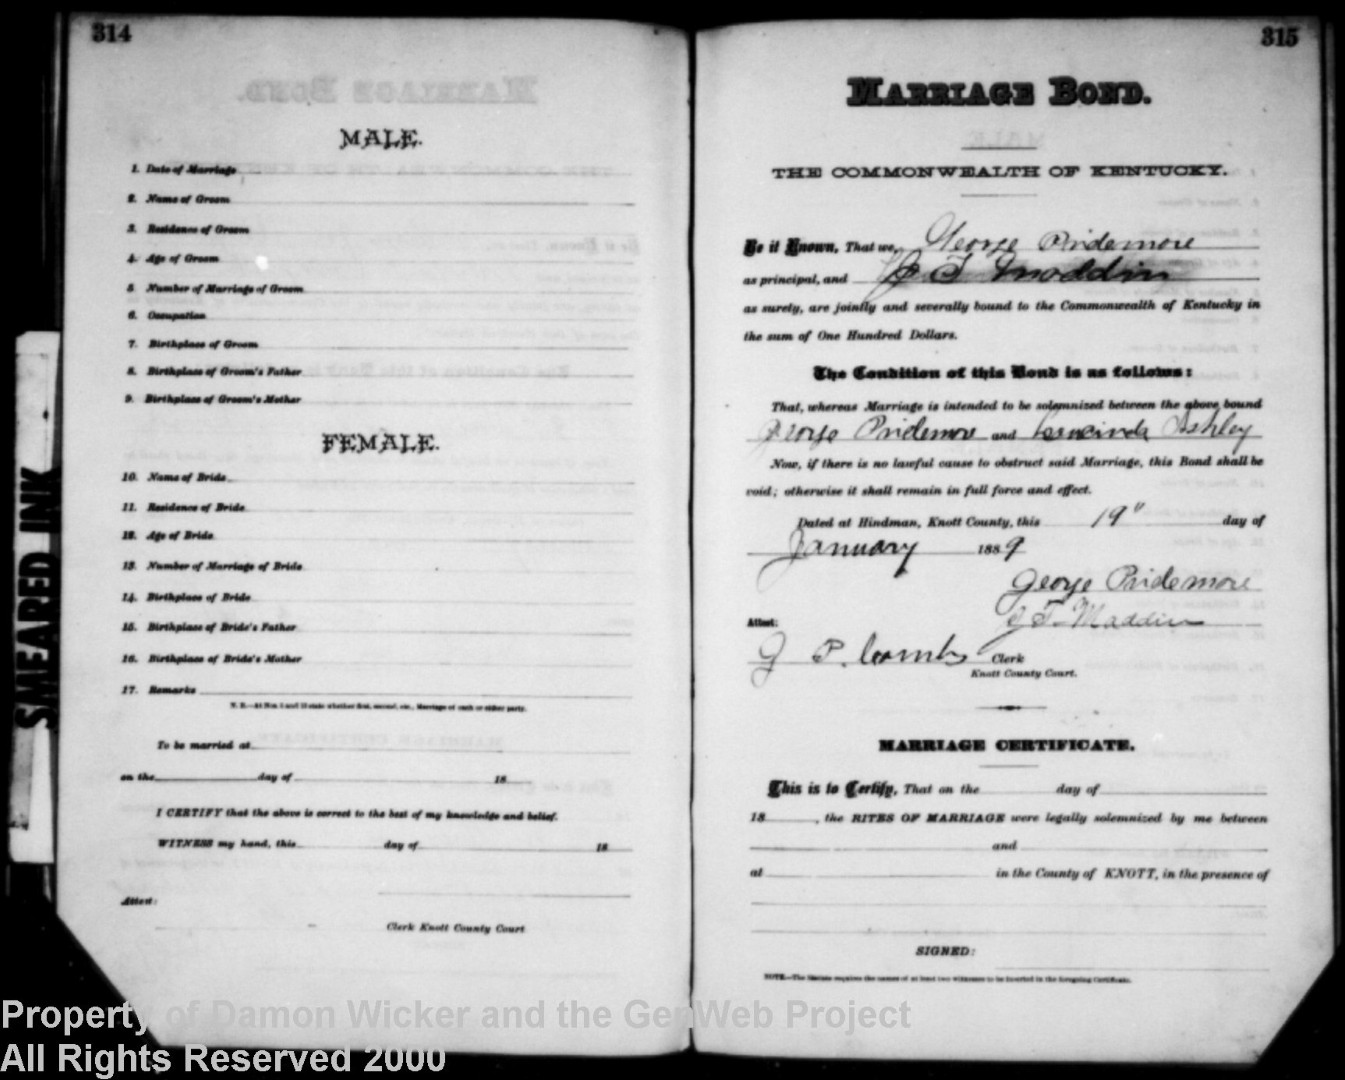 314
MALE.
1. Date of Marriage
2. Name of Groom
3. Residence of Groom
4. Age of Groom
5. Number of Marriage of Groom
6. Occupation
7. Birthplace of Groom
8. Birthplace of Groom's Father
9. Birthplace of Groom's Mother
FEMALE.
10. Name of Bride
11. Residence of Bride
12. Age of Bride
13. Number of Marriage of Bride
14. Birthplace of Bride
15. Birthplace of Bride's Father
16. Birthplace of Bride's Mother
17. Remarks
N. B.—At Nos. 5 and 13 state whether first, second, etc., Marriage of each or either party.
To be married at
on the day of 18
I CERTIFY that the above is correct to the best of my knowledge and belief.
WITNESS my hand, this day of 18
Attest:
Clerk Knott County Court
315
MARRIAGE BOND.
THE COMMONWEALTH OF KENTUCKY.
Be it Known, That we, George Pridemore
as principal, and J T Maddin
as surety, are jointly and severally bound to the Commonwealth of Kentucky in
the sum of One Hundred Dollars.
The Condition of this Bond is as follows:
That, whereas Marriage is intended to be solemnized between the above bound
George Pridemore and Ashley
Now, if there is no lawful cause to obstruct said Marriage, this Bond shall be
void; otherwise it shall remain in full force and effect.
Dated at Hindman, Knott County, this 19" day of
January 1889
George Pridemore
J T Maddin
Attest:
J P. Combs Clerk
Knott County Court.
MARRIAGE CERTIFICATE.
This is to Certify, That on the day of
18 , the RITES OF MARRIAGE were legally solemnized by me between
and
at in the County of KNOTT, in the presence of
SIGNED:
NOTE—The Statute requires the names of at least two witnesses to be inserted in the foregoing Certificate.
SMEARED INK
Property of Damon Wicker and the GenWeb Project
All Rights Reserved 2000